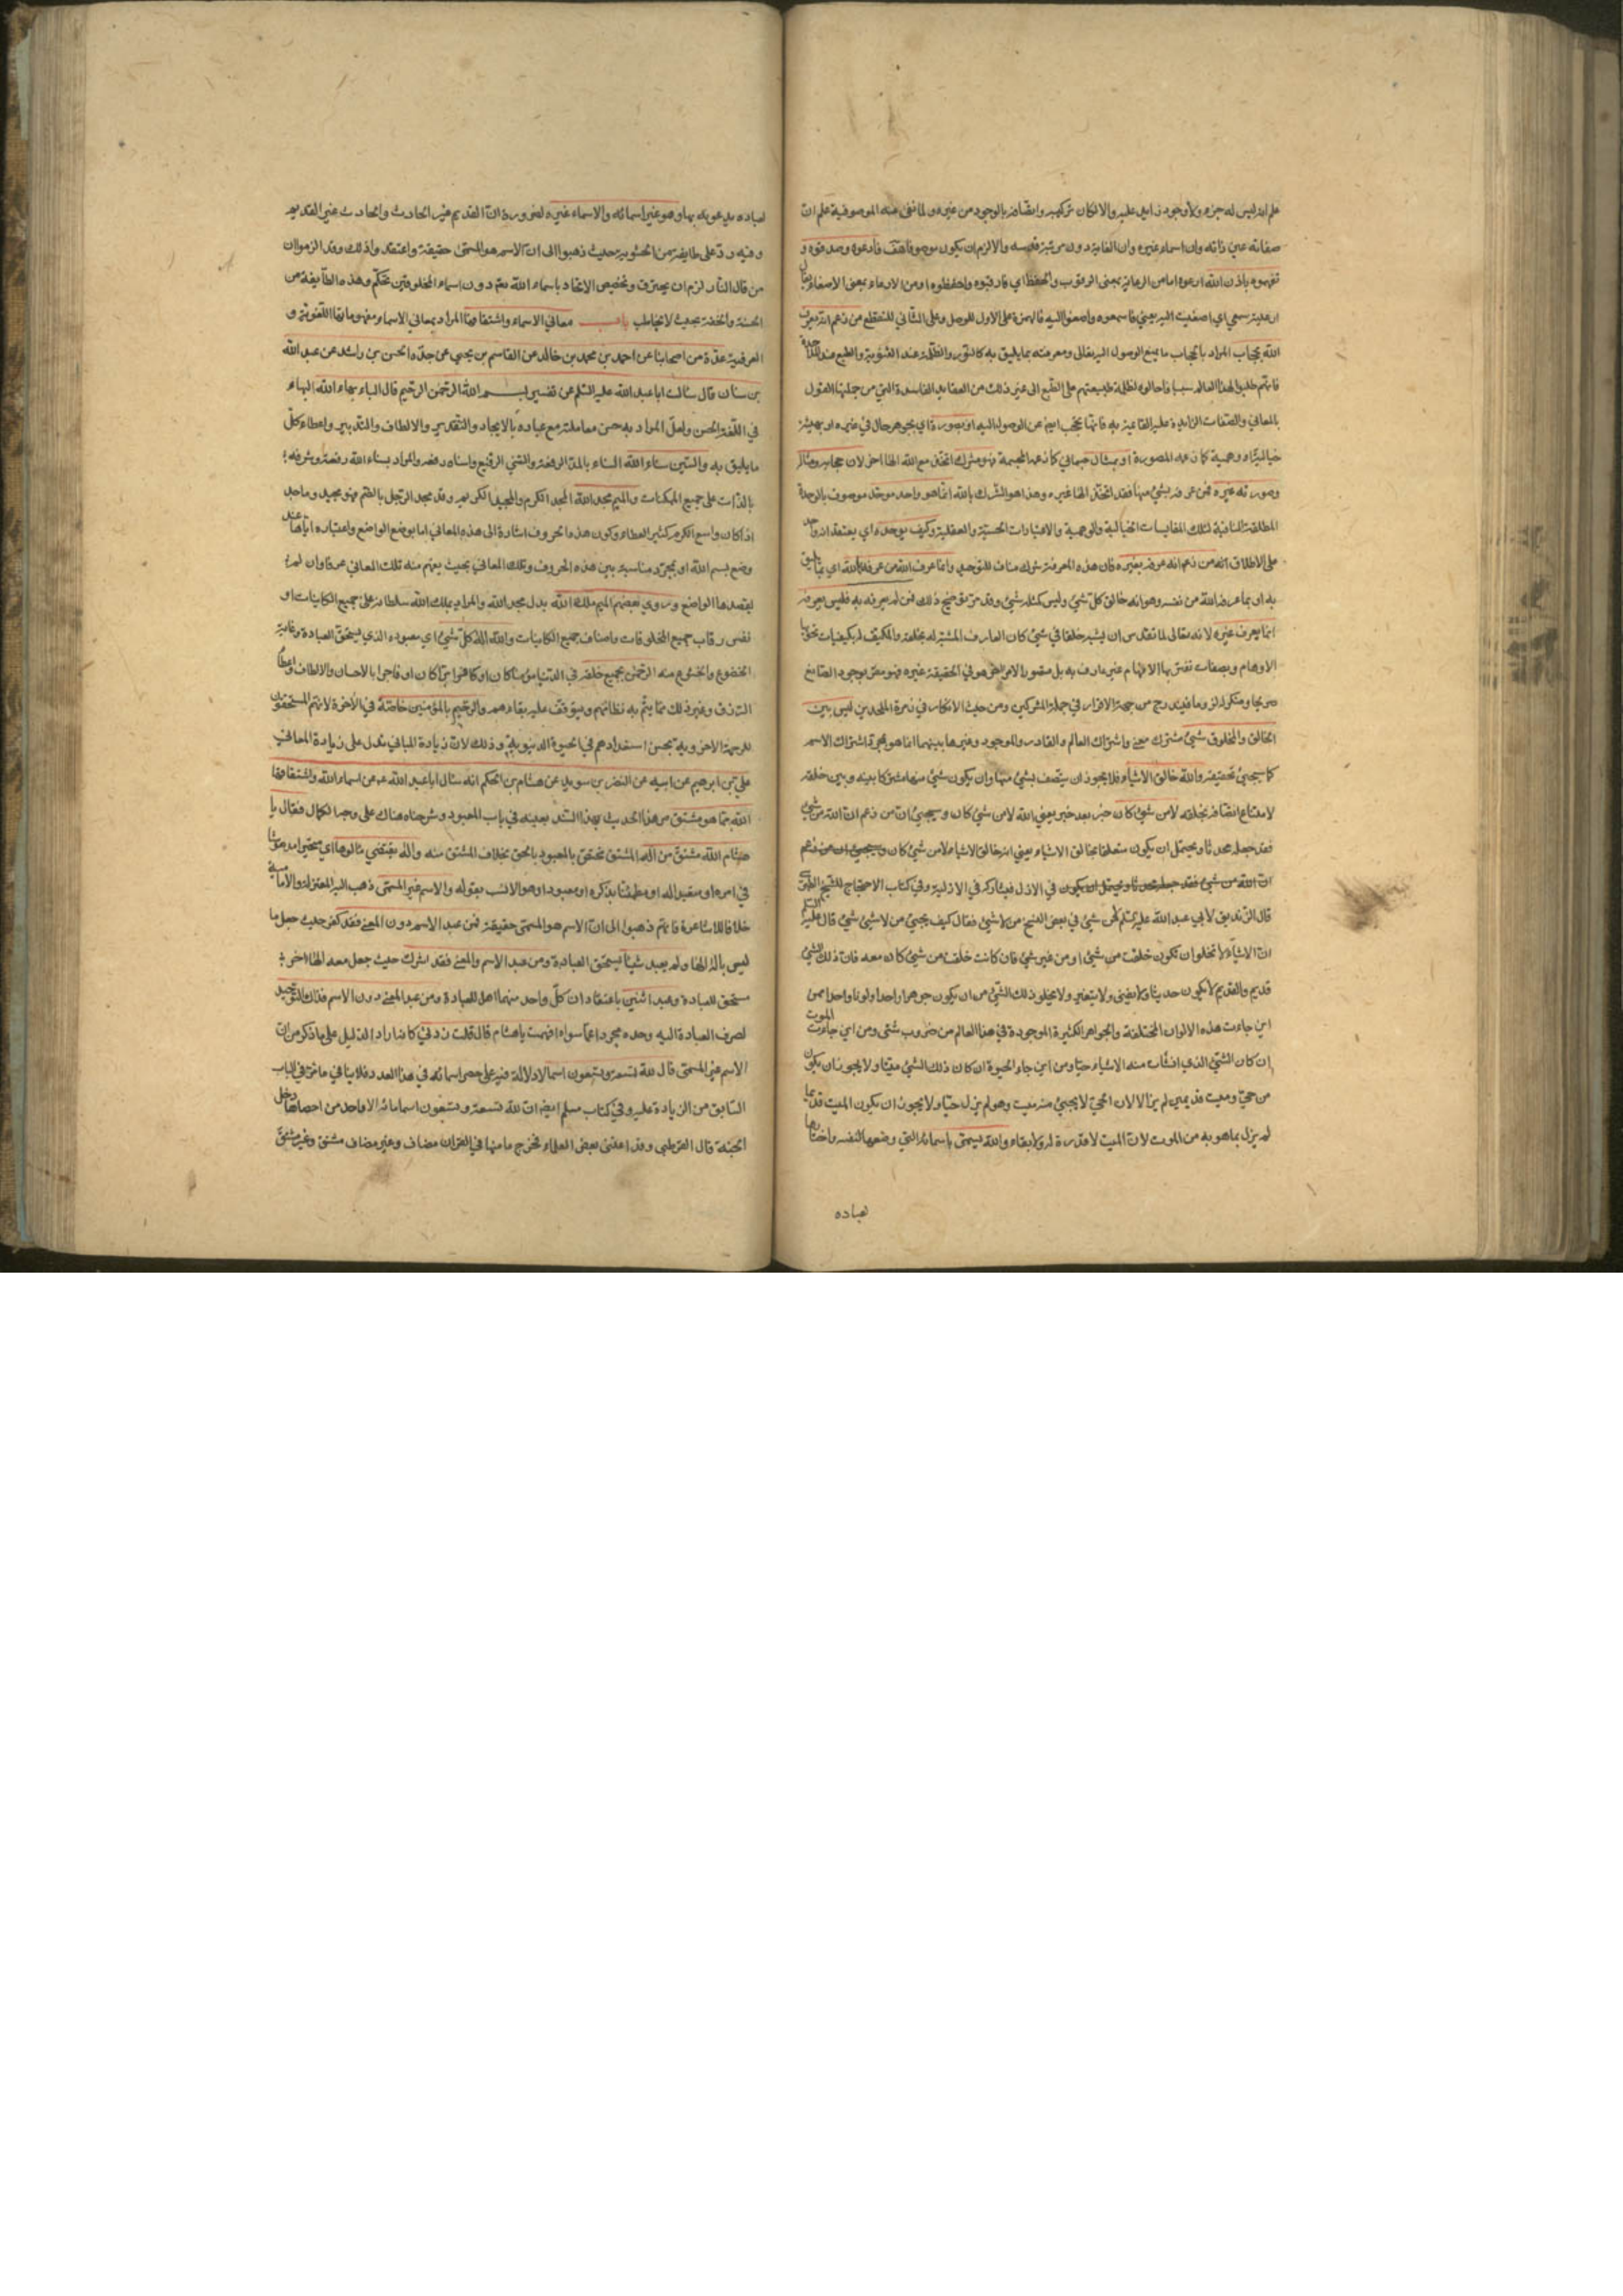 علم انه ليس له جزء ولا وجود زايد عليه والا لكان تركيبه واتصافه بالوجود من غيره ولما نفى عنه الموصوفية علم ان
صفاته عين ذاته وان اسماءه غيره وان الغاية دون مرتبة قدسه والا لزم ان يكون موصوفا هف فادعوه وصدقوه و
تفهموه باذن الله ارعوه اما من الرعاية بمعنى الرقوب والحفظ اي فارقبوه واحفظوه او من الارعاء بمعنى الاصغاء يقال
ارعيته سمعي اي اصغيت اليه يعني فاسمعوه واصغوا اليه فالهمزة على الاول للوصل وعلى الثاني للقطع من زعم انه يعرف
الله بحجاب المراد بالحجاب ما يمنع الوصول اليه تعالى ومعرفته بما يليق به كالنور والظلمة عند الثنوية والطبع عند الملاحدة
فانهم طلبوا لهذا العالم سببا فاحالوه لظلمة طبيعتهم على الطبع الى غير ذلك من العقايد الفاسدة التي من جملتها القول
بالمعاني والصفات الزايدة عليه القايمة به فانها تحجب ايضا عن الوصول اليه او بصورة اي بجوهر حال في غيره او بهيئة
خيالية او وهمية كما زعمه المصورة او بمثال جسماني كما زعمه المجسمة فهو مشرك اتخذ مع الله الها اخر لان حجابه ومثاله
وصورته غيره فمن عرفه بشيء منها فقد اتخذ الها غيره وهذا هو الشرك بالله انما هو واحد موحد موصوف بالوحدة
المطلقة المنافية لتلك المقايسات الخيالية والوهمية والاعتبارات الحسية والعقلية وكيف يوحده اي يعتقد انه واحد
على الاطلاق انه من زعم انه عرفه بغيره فان هذه المعرفة شرك مناف للتوحيد وانما عرف الله من عرفه بالله اي بما يليق
به او بما عرف الله من نفسه وهو انه خالق كل شيء وليس كمثله شيء وقد مر توضيح ذلك فمن لم يعرفه به فليس يعرفه
انما يعرف غيره لانه تعالى لما تقدس ان يشبه خلقا في شيء كان العارف المشبه له بخلقه والمكيف له بكيفيات تخترعها
الاوهام وبصفات تفتريها الافهام غير عارف به بل مقصود الامر الذي هو في الحقيقة غيره فهو مقر بوجود الصانع
صريحا ومنكر له لزوما فيندرج من جهة الاقرار في جملة المشركين ومن حيث الانكار في زمرة الملحدين ليس بين
الخالق والمخلوق شيء مشترك معنى واشتراك العالم والقادر والموجود وغيرها بينهما انما هو بمجرد اشتراك الاسم
كما سيجيء تحقيقه والله خالق الاشياء فلا يجوز ان يتصف بشيء منها وان يكون شيء منها مشتركا بينه وبين خلقه
لامتناع اتصافه بخلقه لا من شيء كان خبر بعد خبر يعني الله لا من شيء كان وسيجيء ان من زعم ان الله من شيء
فقد جعله محدثا ويحتمل ان يكون متعلقا بخالق الاشياء يعني انه خالق الاشياء لا من شيء كان وسيجيء ان من زعم
ان الله من شيء فقد جعله محدثا ويحتمل ان يكون في الازل فيشاركه في الازلية وفي كتاب الاحتجاج للشيخ الطبرسي
قال الزنديق لابي عبد الله عليه السلم من اي شيء في بعض النسخ من لا شيء فقال كيف يجيء من لا شيء شيء قال عليه السلم
ان الاشياء لا تخلو ان تكون خلقت من شيء او من غير شيء فان كانت خلقت من شيء كان معه فان ذلك الشيء
قديم والقديم لا يكون حديثا ولا يفنى ولا يتغير ولا يخلو ذلك الشيء من ان يكون جوهرا واحدا ولونا واحدا فمن
اين جاءت هذه الالوان المختلفة والجواهر الكثيرة الموجودة في هذا العالم من ضروب شتى ومن اين جاء الموت
ان كان الشيء الذي انشات منه الاشياء حيا ومن اين جاء الحيوة ان كان ذلك الشيء ميتا ولا يجوز ان يكون
من حي وميت قديمين لم يزالا لان الحي لا يجيء منه ميت وهو لم يزل حيا ولا يجوز ان يكون الميت قديما
لم يزل بما هو به من الموت لان الميت لا قدرة له ولا بقاء والله يسمى باسمائه التي وضعها لنفسه واختارها
لعباده
لعباده يدعونه بها وهو غير اسمائه والاسماء غيره لضرورة ان القديم غير الحادث والحادث غير القديم
وفيه رد على طايفة من الحشوية حيث ذهبوا الى ان الاسم هو المسمى حقيقة واعتقدوا ذلك وقد الزموا ان
من قال النار لزم ان يحترق وتخصيص الاتحاد باسماء الله تعم دون اسماء المخلوقين تحكم وهذه الطايفة من
الخسة والخفة بحيث لا تخاطب باب معاني الاسماء واشتقاقها المراد بمعاني الاسماء مفهوماتها اللغوية و
العرفية عدة من اصحابنا عن احمد بن محمد بن خالد عن القاسم بن يحيى عن جده الحسن بن راشد عن عبد الله
بن سنان قال سئالت ابا عبد الله عليه السلم عن تفسير بسم الله الرحمن الرحيم قال الباء بهاء الله البهاء
في اللغة الحسن ولعل المراد به حسن معاملته مع عباده بالايجاد والتقدير والالطاف والتدبير واعطاء كل
ما يليق به والسين سناء الله السناء بالمد الرفعة والسني الرفيع واسناه رفعه والمراد بسناء الله رفعته وشرفه
بالذات على جميع الممكنات والميم مجد الله المجد الكرم والمجيد الكريم وقد مجد الرجل بالضم فهو مجيد وماجد
اذا كان واسع الكرم كثير العطاء وكون هذه الحروف اشارة الى هذه المعاني اما بوضع الواضع واعتباره اياها عند
وضع بسم الله او بمجرد مناسبة بين هذه الحروف وتلك المعاني بحيث يفهم منه تلك المعاني عرفا وان لم
يقصدها الواضع وروى بعضهم الميم ملك الله بدل مجد الله والمراد بملك الله سلطانه على جميع الكاينات او
نفس رقاب جميع المخلوقات واصناف جميع الكاينات والله اله كل شيء اي معبوده الذي يستحق العبادة وغاية
الخضوع والخشوع منه الرحمن بجميع خلقه في الدنيا مؤمنا كان او كافرا برا كان او فاجرا بالاحسان والالطاف واعطاء
الرزق وغير ذلك مما يتم به نظامهم ويتوقف عليه بقاءهم والرحيم بالمؤمنين خاصة في الاخرة لانهم المستحقون
للرحمة الاخروية بحسن استعدادهم في الحيوة الدنيوية وذلك لان زيادة المباني تدل على زيادة المعاني
علي بن ابرهيم عن ابيه عن النضر بن سويد عن هشام بن الحكم انه سئال ابا عبد الله ع عن اسماء الله واشتقاقها
الله مما هو مشتق مر هذا الحديث بهذا السند بعينه في باب المعبود وشرحناه هناك على وجه الكمال فقال يا
هشام الله مشتق من اله المشتق تحقق بالمعبود بالحق بخلاف المشتق منه واله يقتضي مالوها اي متحيرا مدهوشا
في امره او متعبدا له او مطمئنا بذكره او معبودا وهو الانسب بقوله والاسم غير المسمى ذهب اليه المعتزلة والامامية
خلافا للاشاعرة فانهم ذهبوا الى ان الاسم هو المسمى حقيقة فمن عبد الاسم دون المعنى فقد كفر حيث جعل ما
ليس باله الها ولم يعبد شيئا يستحق العبادة ومن عبد الاسم والمعنى فقد اشرك حيث جعل معه الها اخر
مستحق للعبادة وعبد اثنين باعتقاد ان كل واحد منهما اهل للعبادة ومن عبد المعنى دون الاسم فذاك التوحيد
لصرف العبادة اليه وحده مجردا عما سواه افهمت يا هشام قال قلت زدني كانه اراد الدليل على ما ذكر من ان
الاسم غير المسمى قال لله تسعة وتسعون اسما لا دلالة فيه على حصر اسمائه في هذا العدد فلا ينافي ما مر في الباب
السابق من الزيادة عليه وفي كتاب مسلم ايضا ان لله تسعة وتسعون اسما مائة الا واحد من احصاها دخل
الجنة قال القرطبي وقد اعتنى بعض العلماء فخرج ما منها في القران مضاف وغير مضاف مشتق وغير مشتق